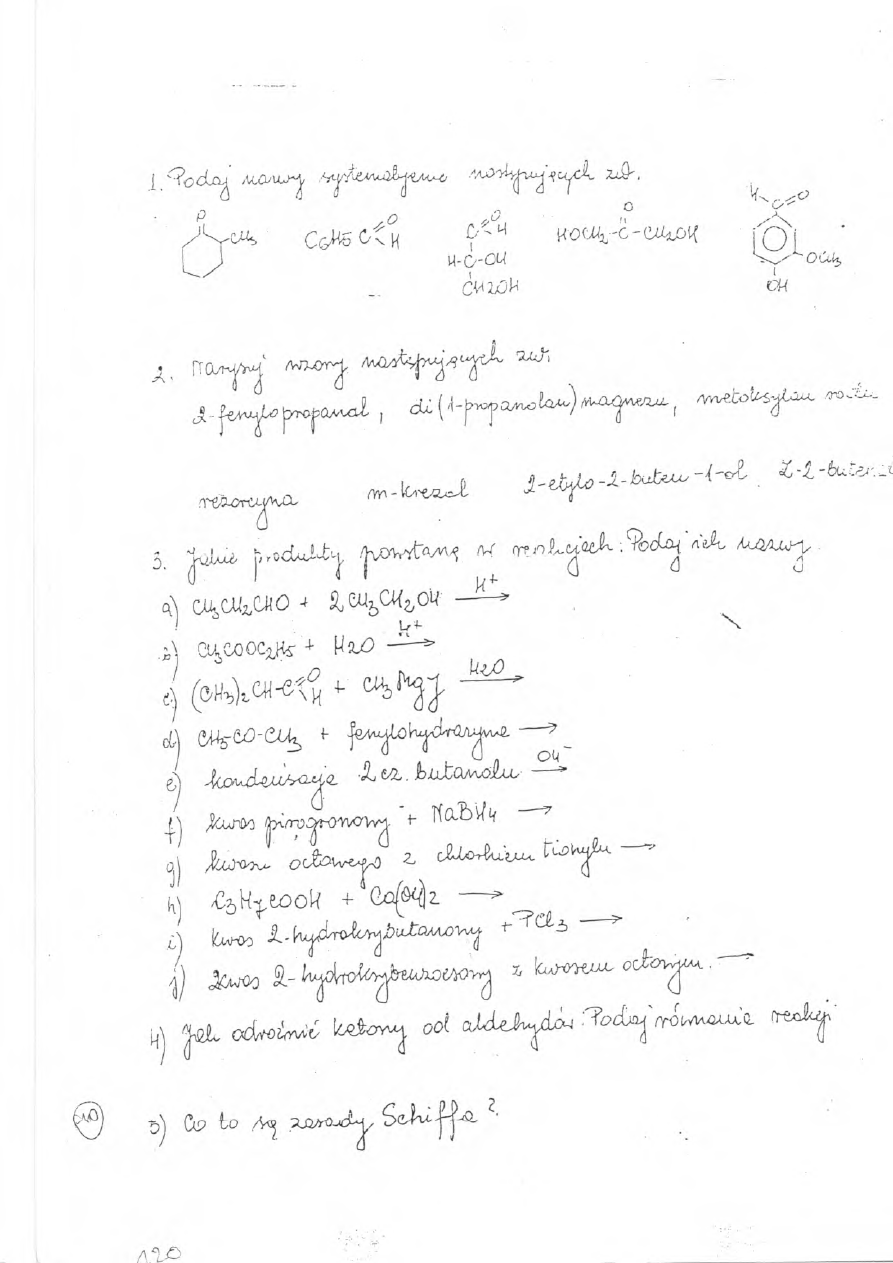 1. Podaj nazwy systematyczne następujących zw.
O
CH3
C6H5 C O H
C O H
H-C-OH
CH2OH
O
HOCH2-C-CH2OH
H C=O
OCH3
OH
2. Narysuj wzory następujących zw.
2-fenylopropanal, di(1-propanolan)magnezu, metoksylan
rezorcyna m-krezol 2-etylo-2-buten-1-ol Z-2-buten
3. Jakie produkty powstaną w reakcjach. Podaj ich nazwy.
a) CH3CH2CHO + 2CH3CH2OH H+ →
b) CH3COOC2H5 + H2O H+ →
c) (CH3)2CH-C O H + CH3MgJ H2O →
d) CH3-CO-CH3 + fenylohydrazyna →
e) kondensacja 2 cz. butanalu OH- →
f) kwas pirogronowy + NaBH4 →
g) kwasu octowego z chlorkiem tionylu →
h) C3H7COOH + Ca(OH)2 →
i) kwas 2-hydroksybutanowy + PCl3 →
j) kwas 2-hydroksybenzoesowy z kwasem octowym. →
4) Jak odróżnić ketony od aldehydów. Podaj równanie reakcji
5) Co to są zasady Schiffa?
120